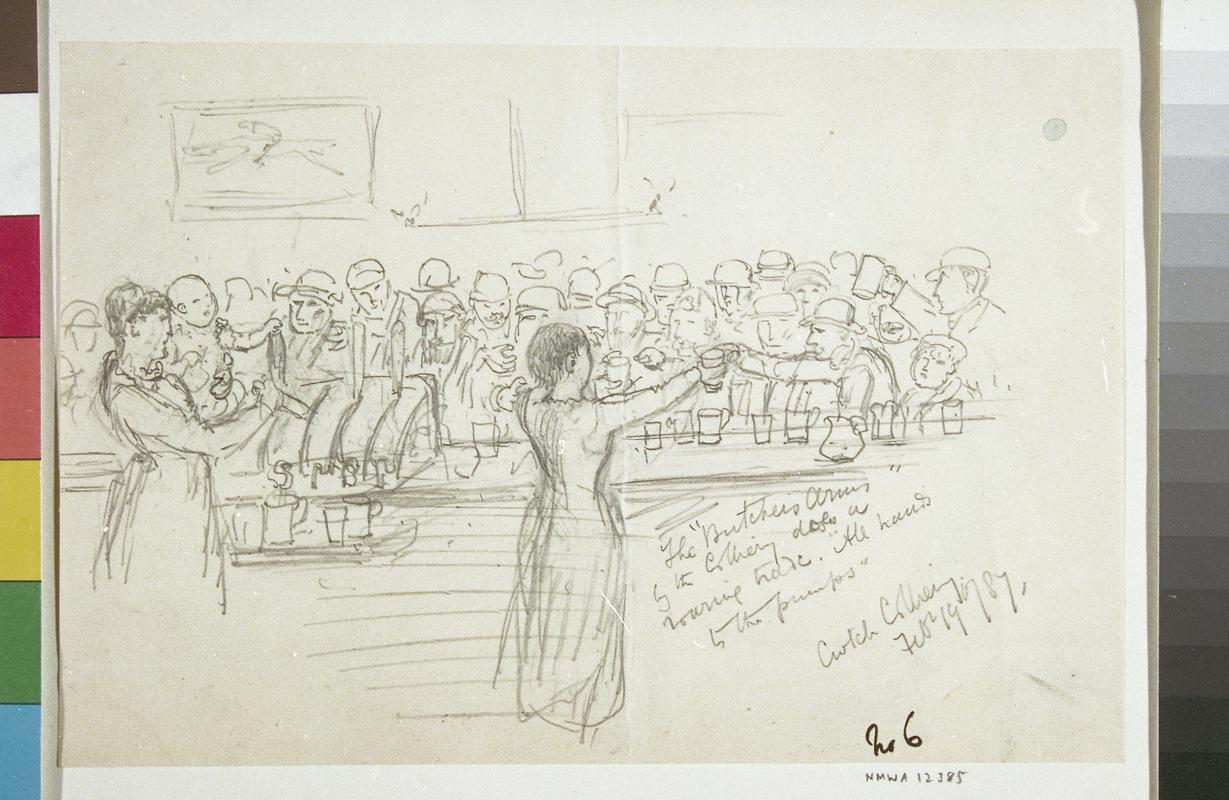 The "Butchers Arms"
by the Colliery does a
roaring trade. "All hands
to the pumps"
Colliery
Feb 19 / 87
No 6
NMWA 12385